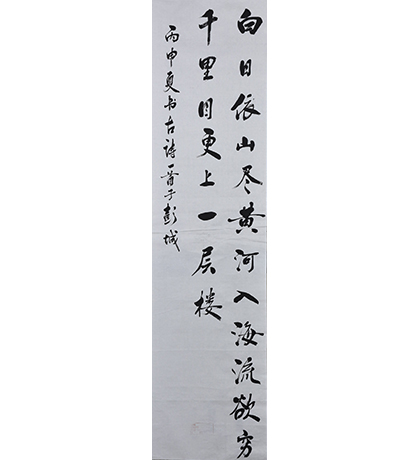 白日依山尽黄河入海流欲穷
千里目更上一层楼
丙申夏书古诗一首于彭城